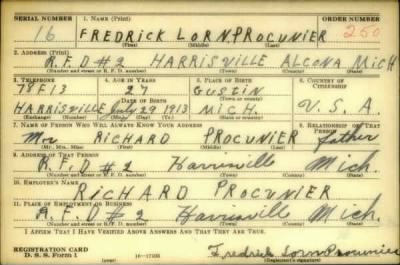 SERIAL NUMBER 1. NAME (Print) ORDER NUMBER
16 FREDRICK LORN PROCUNIER 250
(First) (Middle) (Last)
2. ADDRESS (Print)
R.F.D #2 HARRISVILLE ALCONA MICH
(Number and street or R. F. D. number) (Town) (County) (State)
3. TELEPHONE 4. AGE IN YEARS 5. PLACE OF BIRTH 6. COUNTRY OF CITIZENSHIP
78F13 27 GUSTIN
DATE OF BIRTH (Town or county)
HARRISVILLE July 29 1913 MICH. U.S.A
(Exchange) (Number) (Mo.) (Day) (Yr.) (State or country)
7. NAME OF PERSON WHO WILL ALWAYS KNOW YOUR ADDRESS 8. RELATIONSHIP OF THAT PERSON
RICHARD PROCUNIER father
(Mr., Mrs., Miss) (First) (Middle) (Last)
9. ADDRESS OF THAT PERSON
R.F.D #2 Harrisville Mich.
(Number and street or R. F. D. number) (Town) (County) (State)
10. EMPLOYER'S NAME
RICHARD PROCUNIER
11. PLACE OF EMPLOYMENT OR BUSINESS
R.F.D #2 Harrisville Mich.
(Number and street or R. F. D. number) (Town) (County) (State)
I AFFIRM THAT I HAVE VERIFIED ABOVE ANSWERS AND THAT THEY ARE TRUE.
REGISTRATION CARD
D. S. S. Form 1 (over) Fredrick Lorn Procunier
(Registrant's signature)